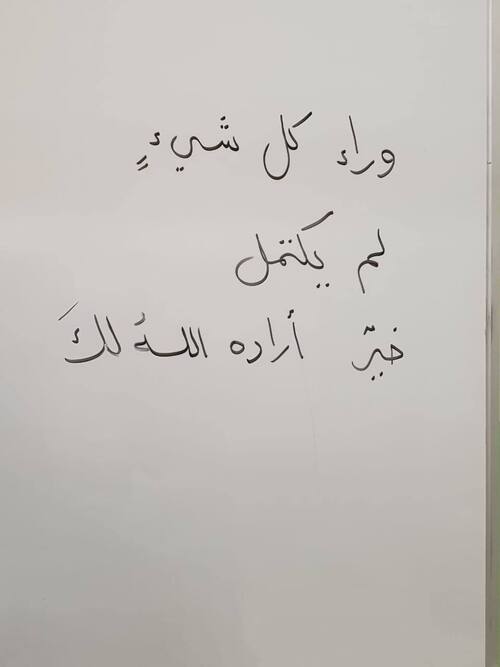 وراء كل شَيءٍ
لم يكتمل
خيرٌ أراده اللهُ لكَ